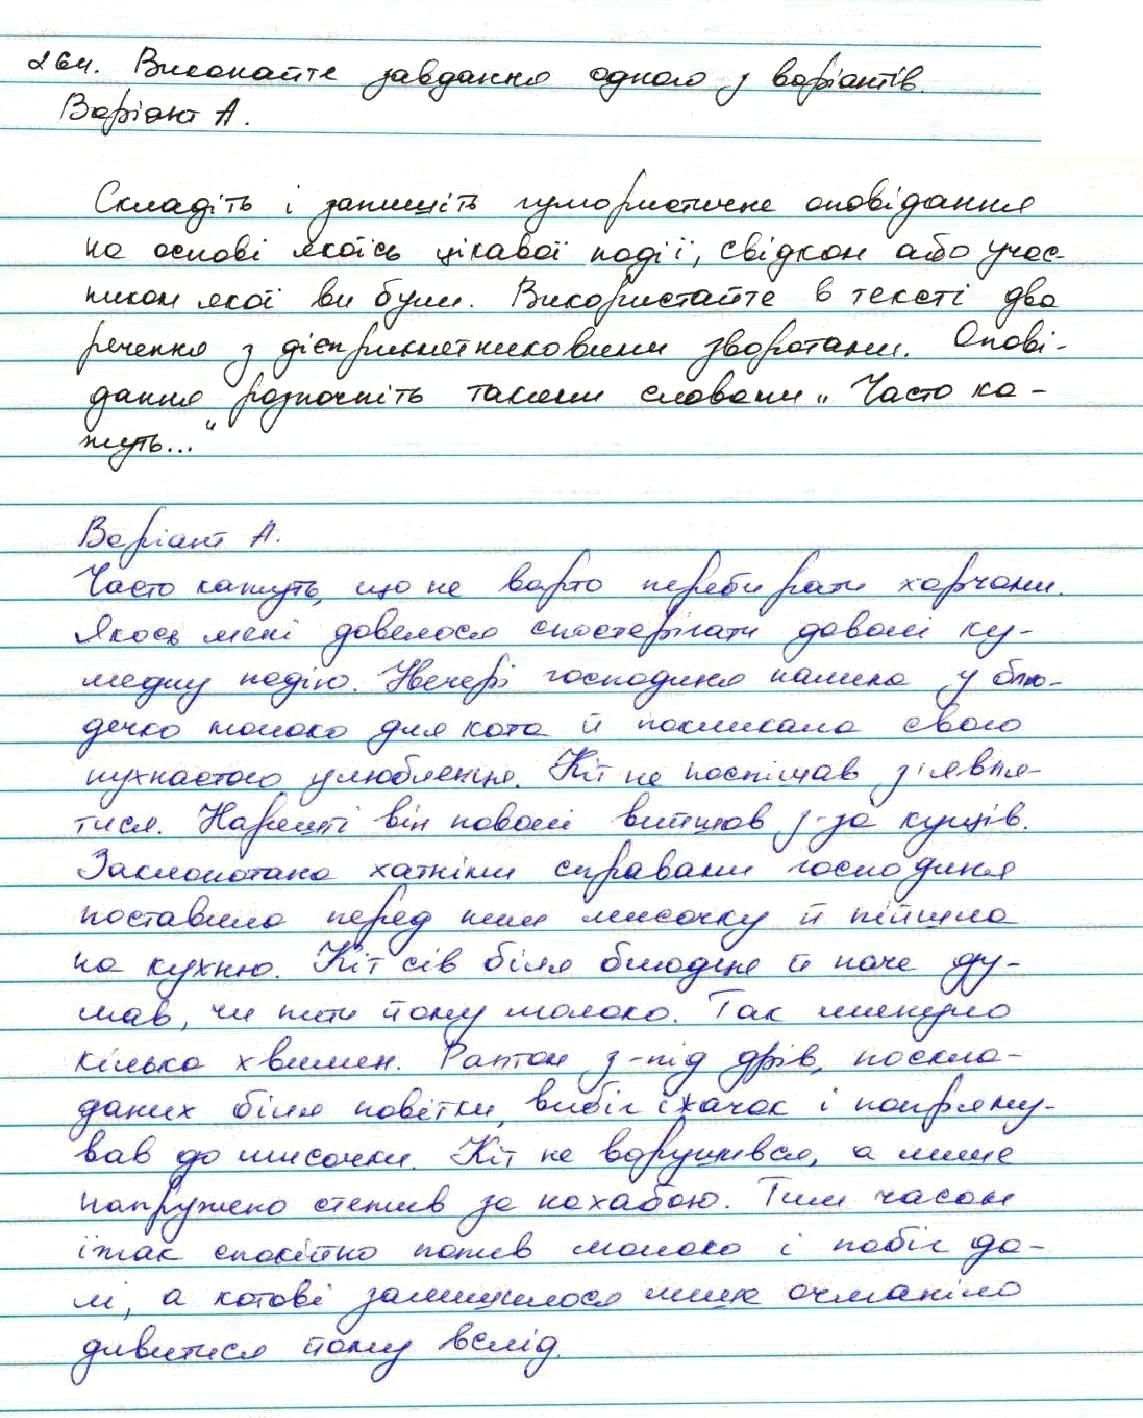 264. Виконайте завдання одного з варіантів.
Варіант А.
Складіть і запишіть гумористичне оповідання
на основі якоїсь цікавої події, свідком або учас-
ником якої ви були. Використайте в тексті два
речення з дієприкметниковими зворотами. Опові-
дання розпочніть такими словами „Часто ка-
жуть..."
Варіант А.
Часто кажуть, що не варто перебирати харчами.
Якось мені довелося спостерігати доволі ку-
медну подію. Увечері господиня налила у блю-
дечко молоко для кота й покликала свого
пухнастого улюбленця. Кіт не поспішав з'явля-
тися. Нарешті він поволі вийшов з-за кущів.
Заклопотана хатніми справами господиня
поставила перед ним мисочку й пішла
на кухню. Кіт сів біля блюдця й наче ду-
мав, чи пити йому молоко. Так минуло
кілька хвилин. Раптом з-під дрів, поскла-
даних біля повітки, вибіг їжачок і попряму-
вав до мисочки. Кіт не ворушився, а лише
напружено стежив за нахабою. Тим часом
їжак спокійно попив молоко і побіг да-
лі, а котові залишилося лише очманіло
дивитися йому вслід.